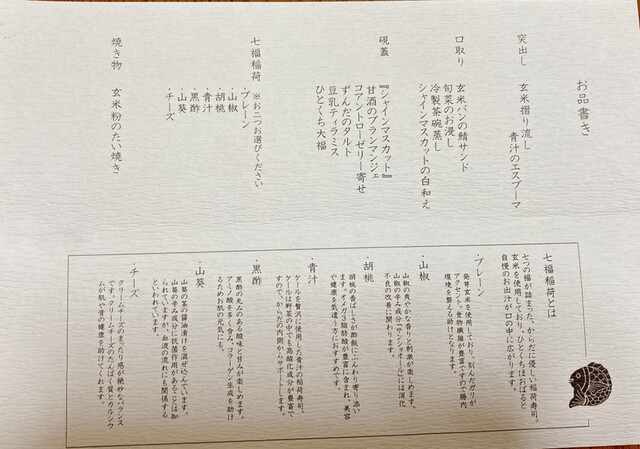 お品書き
突出し 玄米摺り流し
青汁のエスプーマ
口取り 玄米パンの鯖サンド
旬菜のお浸し
冷製茶碗蒸し
シャインマスカットの白和え
硯蓋 『シャインマスカット』
甘酒のブランマンジェ
コアントローゼリー寄せ
ずんだのタルト
豆乳ティラミス
ひとくち大福
七福稲荷 ※お二つお選びください
・プレーン
・山椒
・胡桃
・青汁
・黒酢
・山葵
・チーズ
焼き物 玄米粉のたい焼き
七福稲荷とは
七つの福が詰まった、からだに優しい稲荷寿司。
玄米を使用しており、ひとくちほおばると
自慢のお出汁が口の中に広がります。
・プレーン
発芽玄米を使用しており、刻んだガリが
アクセント。食物繊維が豊富ですので腸内
環境を整える助けとなります。
・山椒
山椒の爽やかな香りと刺激が楽しめます。
山椒の辛み成分『サンショオール』には消化
不良の改善に関わります。
・胡桃
胡桃の香ばしさが酢飯にふんわり寄り添い
ます。オメガ3脂肪酸が豊富に含まれ、美容
や健康を気遣う方におすすめです。
・青汁
ケールを贅沢に使用した青汁の稲荷寿司。
ケールは野菜の中でも高酸化成分が豊富で
すので、からだの内側からサポートします。
・黒酢
黒酢の丸みのある酸味と甘みが楽しめます。
アミノ酸を多く含み、コラーゲン生成を助け
るためお肌の元気にも。
・山葵
山葵の茎の醤油漬けを混ぜ込んでいます。
山葵の辛み成分に抗菌作用があることは知
られていますが、血液の流れにも関係する
といわれています。
・チーズ
クリームチーズのまったり感が絶妙なバランス
です。クリームチーズのたんぱく質とカルシウ
ムが肌や骨の健康を助けてくれます。